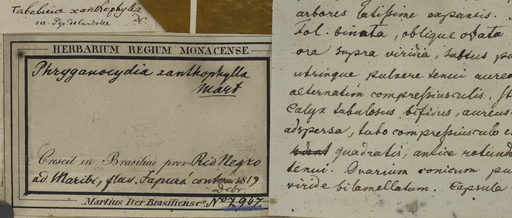 Tabebuia xanthophylla
HERBARIUM REGIUM MONACENSE
Phryganocydia xanthophylla
Mart
Crescit in Brasiliae prov. Rio Negro
ad Maribi, fluv. Japurá 1819
Debr.
Martius Iter Brasiliense. No 2967
arbores latissime expansis.
fol. binata, oblique ovata
ora supra viridia, subtus
utrinque pulvere tenui aureo
alternatim compressiusculis.
Calyx tubulosus bifidus, aureus
adspersa, tubo compressiusculo
quadratis, antice rotund
tenui. Ovarium conicum
viride bilamellatum. Capsula